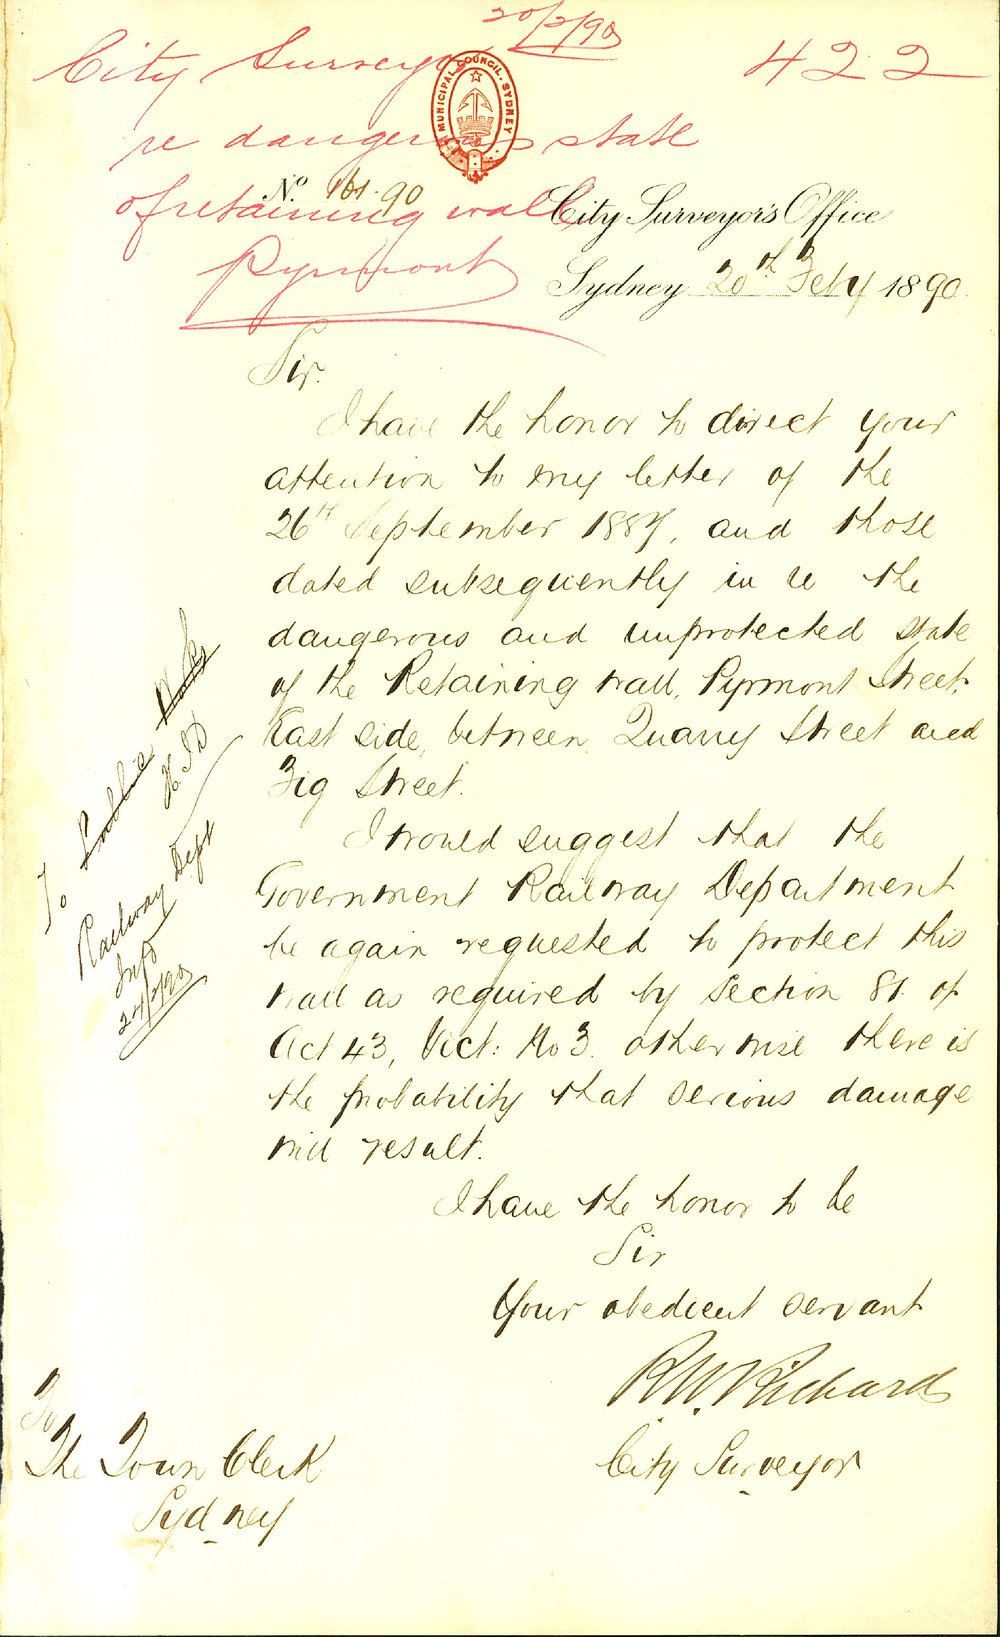 20/2/90
City Surveyor
422
re dangerous state
of retaining wall
Pyrmont
MUNICIPAL COUNCIL. SYDNEY
No. 161.90
City Surveyor's Office
Sydney 20th Feby 1890
Sir.
I have the honor to direct your
attention to my letter of the
26th September 1887, and those
dated subsequently in re the
dangerous and unprotected state
of the Retaining wall, Pyrmont Street,
East side, between Quarry Street and
Fig Street.
I would suggest that the
Government Railway Department
be again requested to protect this
wall as required by Section 81. of
Act 43, Vict: No 3. otherwise there is
the probability that serious damage
will result.
I have the honor to be
Sir
Your obedient servant
R.W. Richards
City Surveyor
To
The Town Clerk
Sydney
To Public Works
Railway Dept
24/2/90